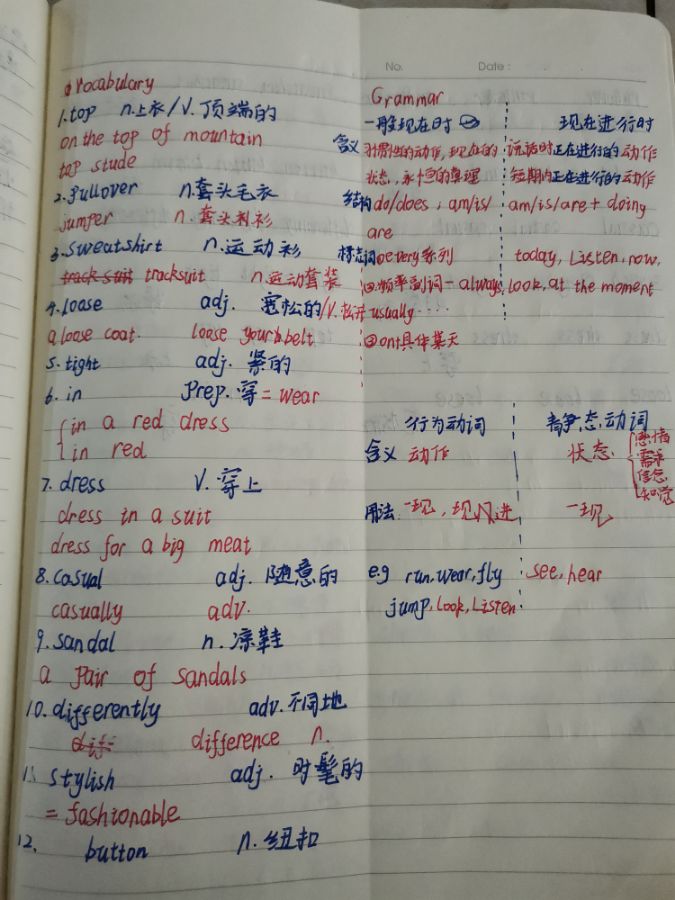 Vocabulary
1.top n.上衣/V.顶端的
on the top of mountain
top stude
2.pullover n.套头毛衣
jumper n.套头衫
3.sweatshirt n.运动衫
track suit tracksuit n.运动套装
4.loose adj. 宽松的/V.松开
a loose coat. loose your belt.
5.tight adj. 紧的
6.in prep.穿=wear
in a red dress
in red
7.dress V.穿上
dress in a suit
dress for a big meat
8.casual adj.随意的
casually adv.
9.sandal n.凉鞋
a pair of sandals
10.differently adv.不同地
dif difference n.
11.stylish adj.时髦的
=fashionable
12. button n.纽扣
No. Date:
Grammar
一般现在时 现在进行时
含义 习惯性的动作,现在的 说话时正在进行的动作
状态,永恒的真理 短期内正在进行的动作
结构 do/does;am/is/ am/is/are+doing
are
标志词 ①every系列 today, Listen,now,
②频率副词-always, Look,at the moment
usually......
③on+具体某天
行为动词 静态动词
含义 动作 状态 感情
需求
信念
知觉
用法 一现,现进 一现
e.g run,wear,fly see,hear
jump,look,Listen